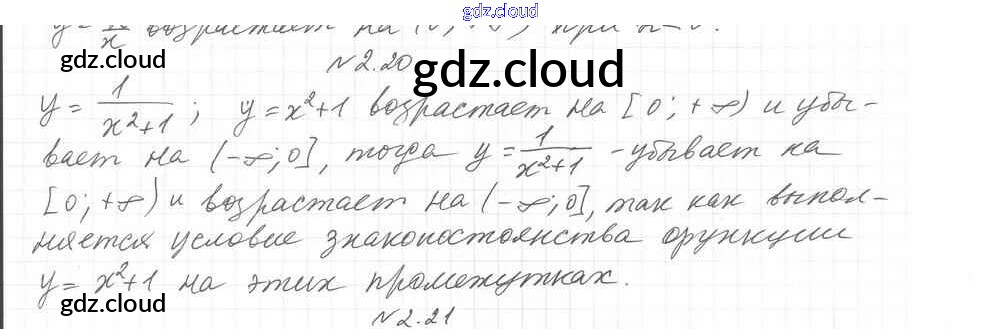 gdz.cloud
y = x возрастает на (0; +∞) при
№ 2.20
gdz.cloud
gdz.cloud
y = 1/(x²+1); y = x²+1 возрастает на [0; +∞) и убы-
вает на (-∞; 0], тогда y = 1/(x²+1) - убывает на
[0; +∞) и возрастает на (-∞; 0], так как выпол-
няется условие знакопостоянства функции
y = x²+1 на этих промежутках.
gdz.cloud
gdz.cloud
№ 2.21